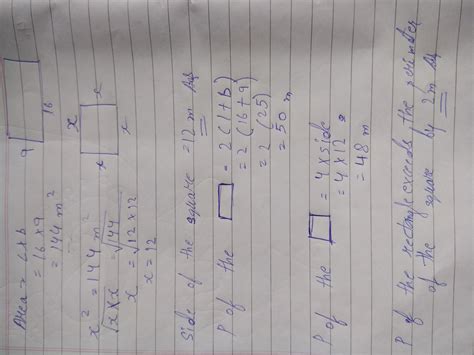 Area = L x b
= 16 x 9
= 144 m²
16
9
x² = 144 m²
√x x x = √144
x = √12 x 12
x = 12
x
x
x
x
Side of the square = 12 m Ans
P of the = 2 (l + b)
= 2 (16 + 9)
= 2 (25)
= 50 m
P of the = 4 x side
= 4 x 12
= 48 m
P of the rectangle exceeds the perimeter
of the square by 2m Ans